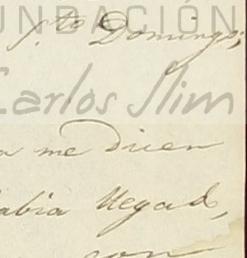 FUNDACIÓN
Sto Domingo;
Carlos Slim
a me dicen
abia llegad,
con